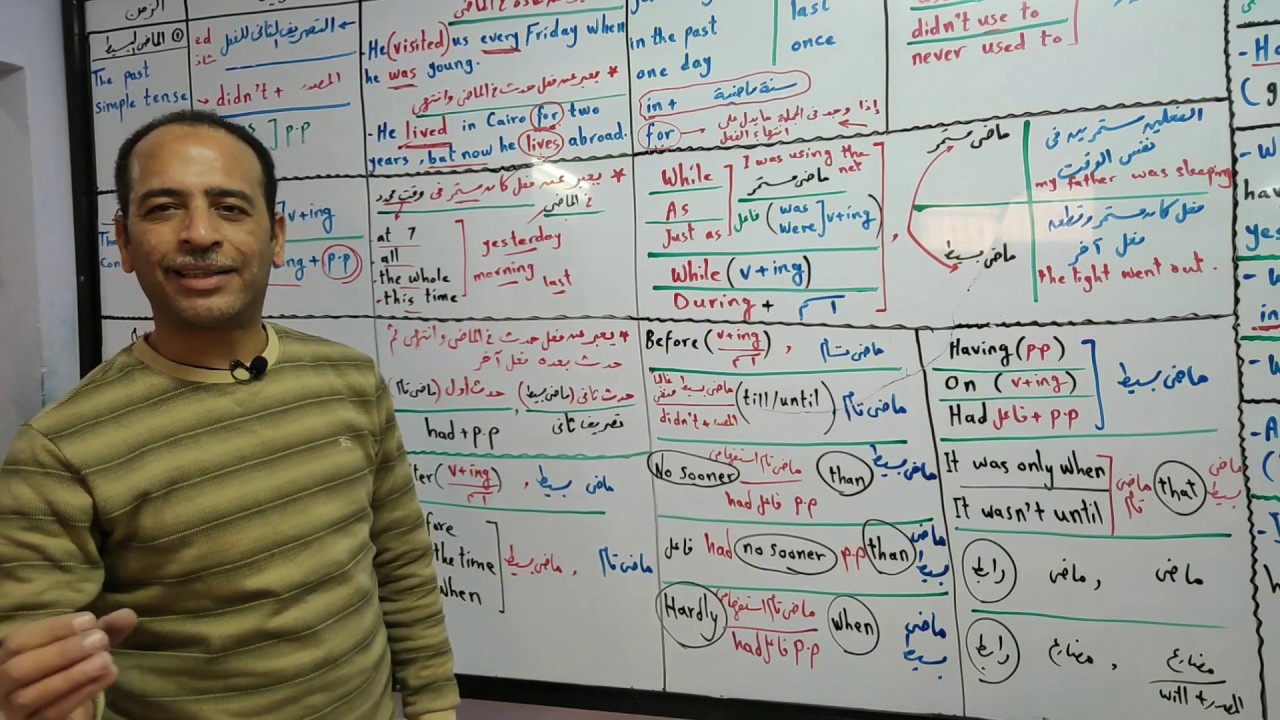 الزمن
① الماضى البسيط
The past
simple tense
← التصريف الثانى للفعل
ed
شاذ
didn't + المصدر
] p.p
] v+ing
ing + p.p
-He (visited) us every Friday when
he was young.
* يعبر عن فعل حدث فى الماضى وانتهى
-He lived in Cairo for two
years, but now he lives abroad.
in the past
one day
last
once
in + سنة ماضية
for → إذا وجد فى الجملة ما يدل على
انتهاء الفعل
didn't use to
never used to
* يعبر عن فعل كان مستمر فى وقت محدد
فى الماضى
-at 7
-all
-the whole
-this time
yesterday
morning
last
While
As
Just as
I was using the net
ماضى مستمر
فاعل (was
were] v+ing)
While (v+ing)
During + اسم
,
ماضى مستمر
ماضى بسيط
الفعلين مستمرين فى
نفس الوقت
my father was sleeping
فعل كان مستمر وقطعه
فعل آخر
the light went out.
* يعبر عن فعل حدث فى الماضى وانتهى ثم
حدث بعده فعل آخر
حدث ثانى (ماضى بسيط) , حدث أول (ماضى تام)
تصريف ثانى
had + p.p
ter (v+ing
اسم) , ماضى بسيط
fore
the time
When
ماضى بسيط , ماضى تام
Before (v+ing
اسم) , ماضى تام
ماضى بسيط غالبا منفى
didn't + المصدر
(till/until) ماضى تام
No sooner ماضى تام استفهامى than ماضى بسيط
had فاعل p.p
فاعل had no sooner p.p than ماضى بسيط
Hardly ماضى تام استفهامى when ماضى بسيط
had فاعل p.p
Having (p.p)
On (v+ing)
Had فاعل + p.p
ماضى بسيط
It was only when
It wasn't until
ماضى تام
that
ماضى بسيط
رابط ماضى , ماضى
رابط مضارع , مضارع
will + المصدر
-He
(g
-W
hav
yes
in
-A